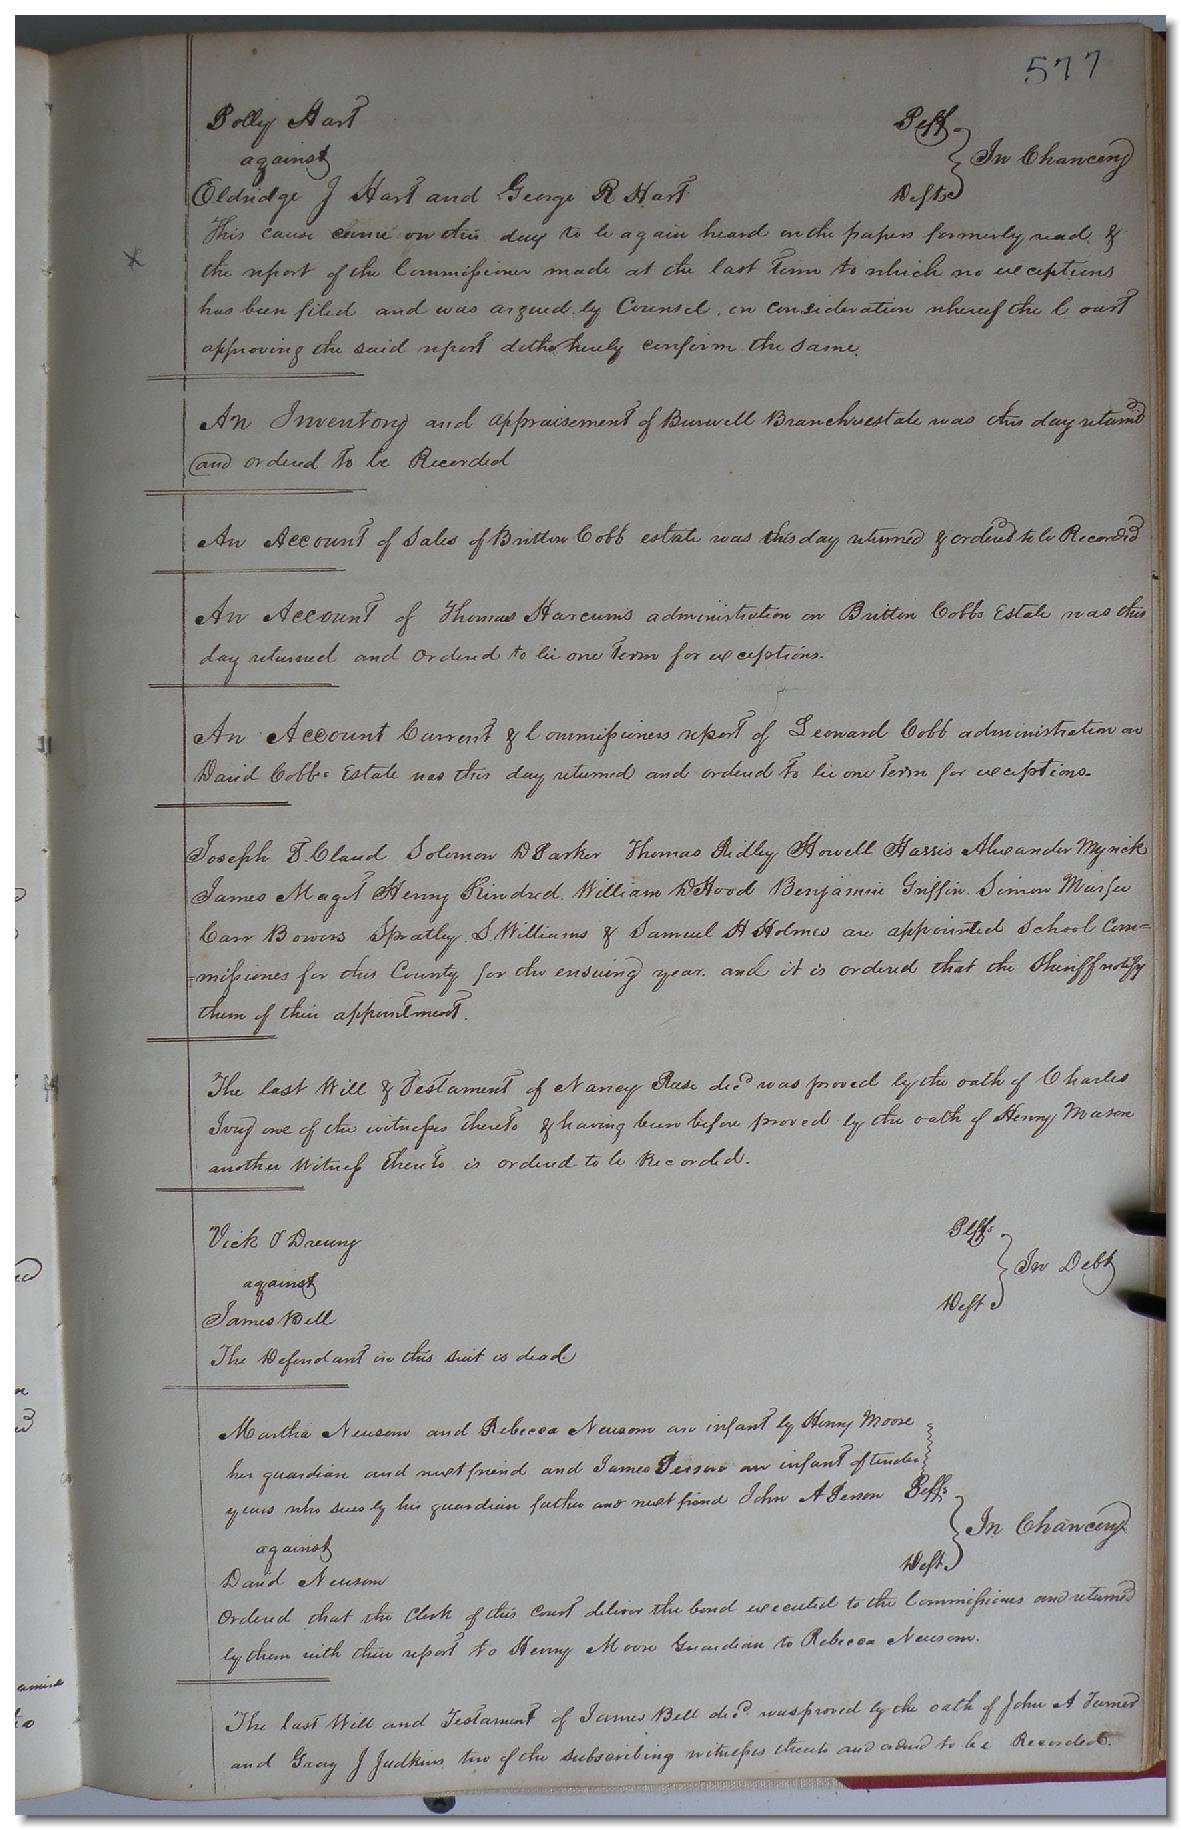 577
Polly Hart Peff
against In Chancery
Eldridge J Hart and George R Hart Defts
This cause came on this day to be again heard on the papers formerly read &
the report of the Commissioner made at the last Term to which no exceptions
has been filed and was argued by Counsel, on consideration whereof the Court
approving the said report doth hereby confirm the same.
An Inventory and appraisement of Burwell Branch estate was this day returned
and ordered to be Recorded
An Account of Sales of Britton Cobb estate was this day returned & ordered to be Recorded
An Account of Thomas Harcums administration on Britton Cobbs Estate was this
day returned and ordered to lie one Term for exceptions.
An Account Current & Commissioners report of Leonard Cobb administration on
David Cobbs Estate was this day returned and ordered to lie one Term for exceptions.
Joseph T. Claud Solomon D Parker Thomas Ridley Howell Harris Alexander Myrick
James Maget Henry Kindred William D Hood Benjamin Griffin Simon Murfee
Carr Bowers Spratley S Williams & Samuel H Holmes are appointed School Com=
=missiones for this County for the ensuing year. and it is ordered that the Sheriff notify
them of their appointment.
The last Will & Testament of Nancy decd was proved by the oath of Charles
Ivey one of the witnesses thereto & having been before proved by the oath of Henry Mason
another Witness thereto is ordered to be Recorded.
Vick & Peffs
against In Debt
James Bell Deft
The Defendant in this suit is dead
Martha Newsom and Rebecca Newsom an infant by Henry Moore
her guardian and next friend and James Person an infant of tender
years who sues by his guardian father and next friend John A Person Peffs
against In Chancery
David Newsom Deft
Ordered that the Clerk of this Court deliver the bond executed to the Commissioners and returned
by them with their report to Henry Moore Guardian to Rebecca Newsom.
The last Will and Testament of James Bell decd was proved by the oath of John A Turner
and Gray J Judkins two of the subscribing witnesses thereto and ordered to be Recorded.